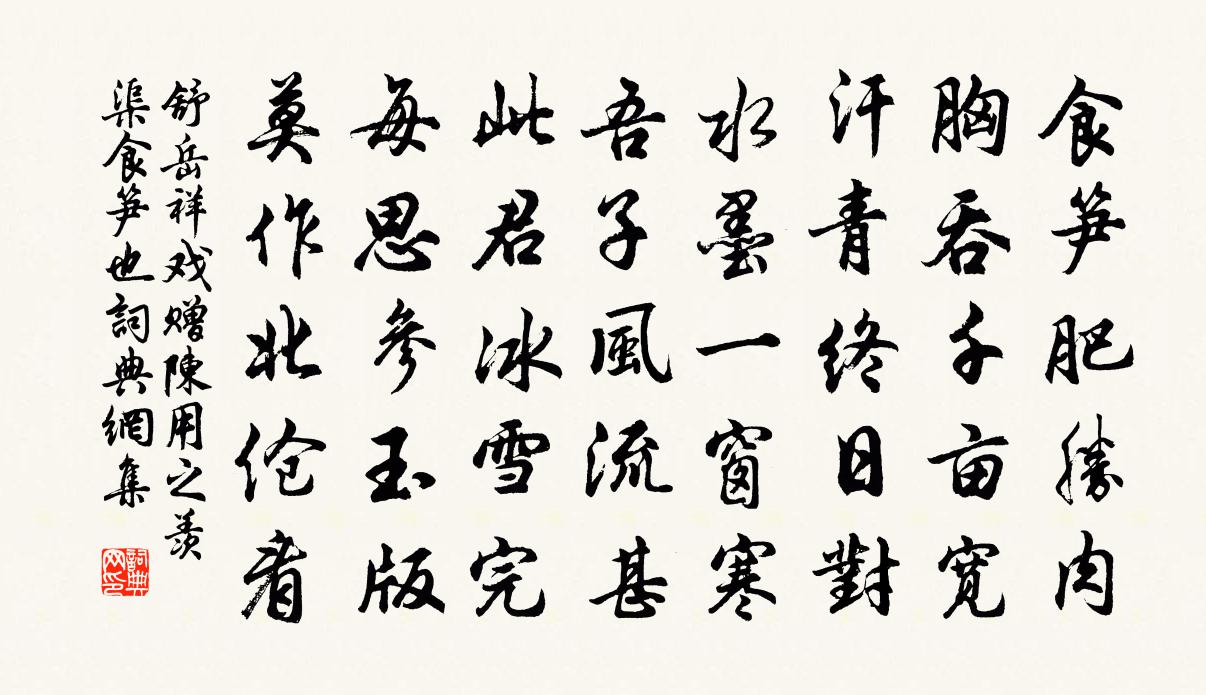 食笋肥勝肉
胸吞千亩寛
汗青终日對
水墨一窗寒
吾子風流甚
此君冰雪完
每思參玉版
莫作北伧看
舒岳祥戏赠陳用之羡
渠食笋也詞典網集
詞典
网印